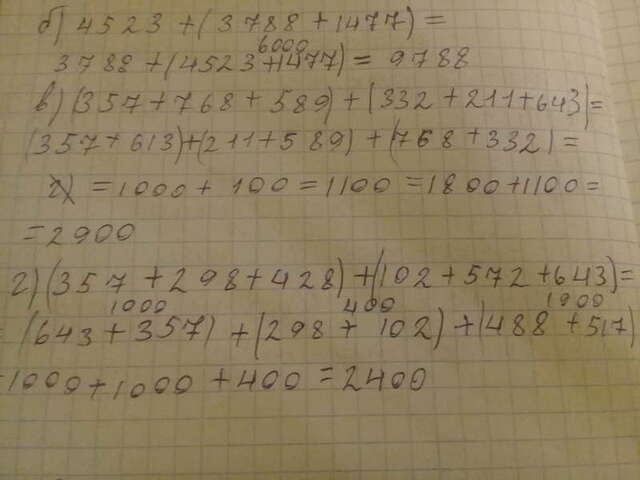 б) 4523 + (3788 + 1477) =
6000
3788 + (4523 + 1477) = 9788
в) (357 + 768 + 589) + (332 + 211 + 643) =
(357 + 613) + (211 + 589) + (768 + 332) =
= 1000 + 100 = 1100 = 1800 + 1100 =
= 2900
г) (357 + 298 + 428) + (102 + 572 + 643) =
1000 400 1900
= (643 + 357) + (298 + 102) + (488 + 517)
= 1000 + 1000 + 400 = 2400